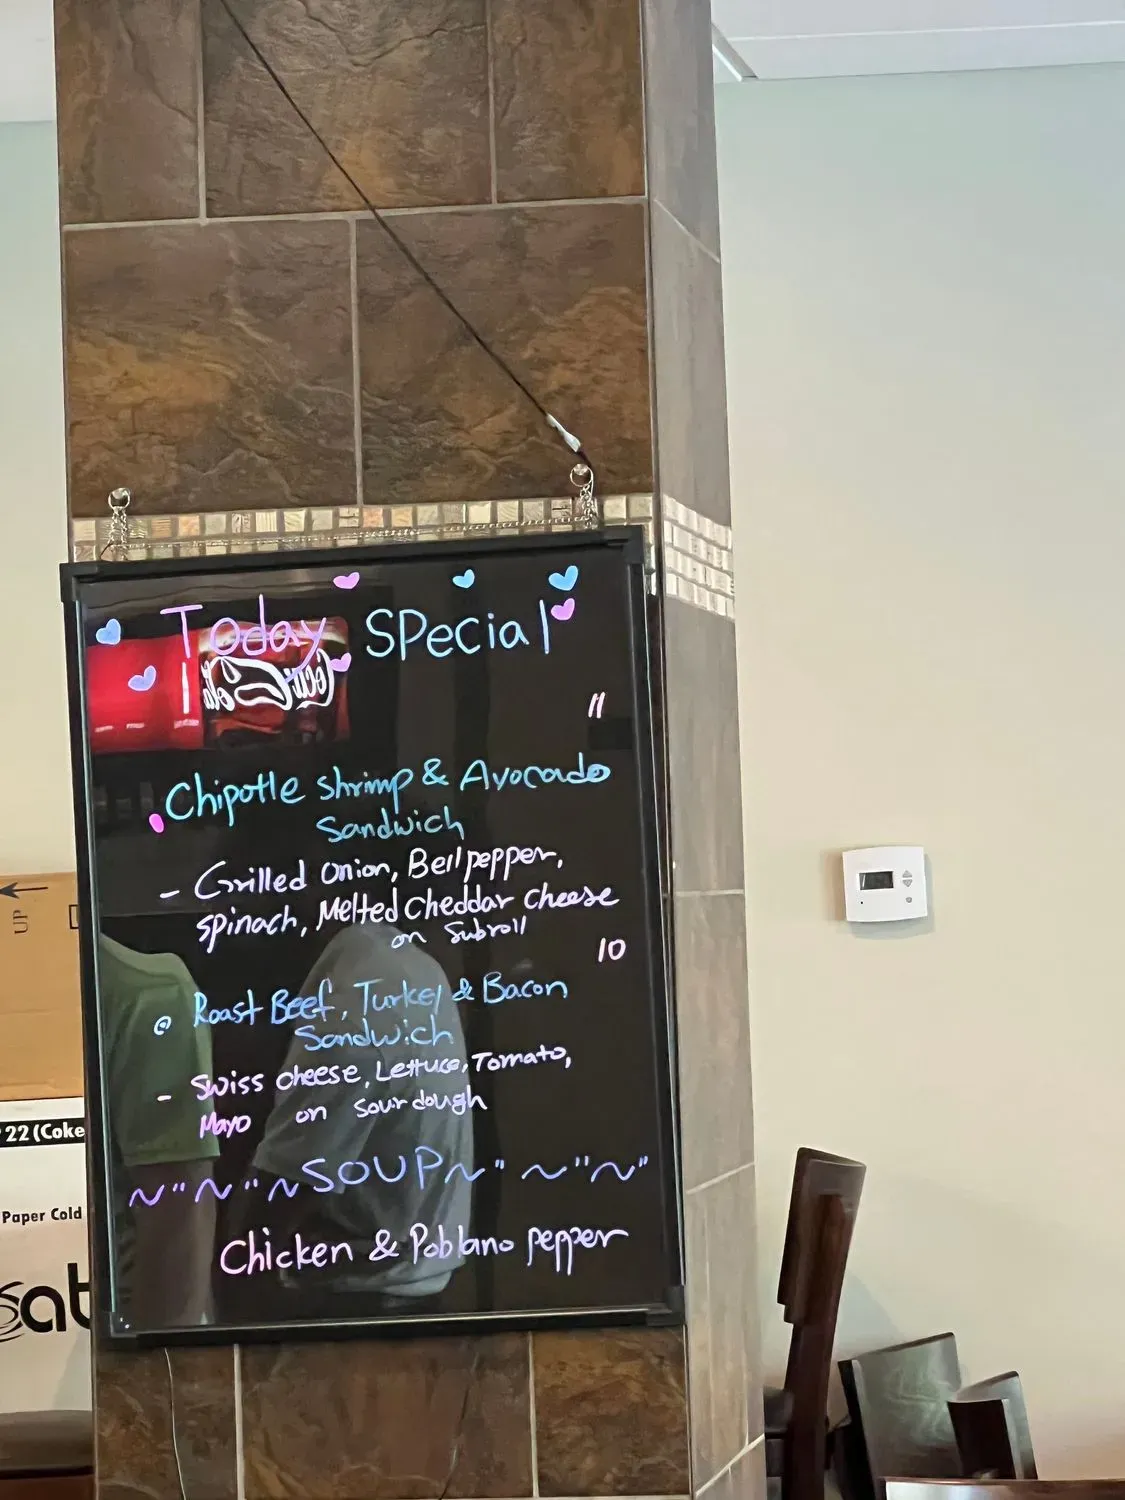 Today Special
Coca-Cola
11
Chipotle shrimp & Avocado
Sandwich
- Grilled onion, Bell pepper,
spinach, Melted Cheddar Cheese
on Subroll
10
Roast Beef, Turkey & Bacon
Sandwich
- Swiss cheese, Lettuce, Tomato,
Mayo on sourdough
~"~"~SOUP~"~"~"
Chicken & Poblano pepper
UP
22 (Coke
Paper Cold